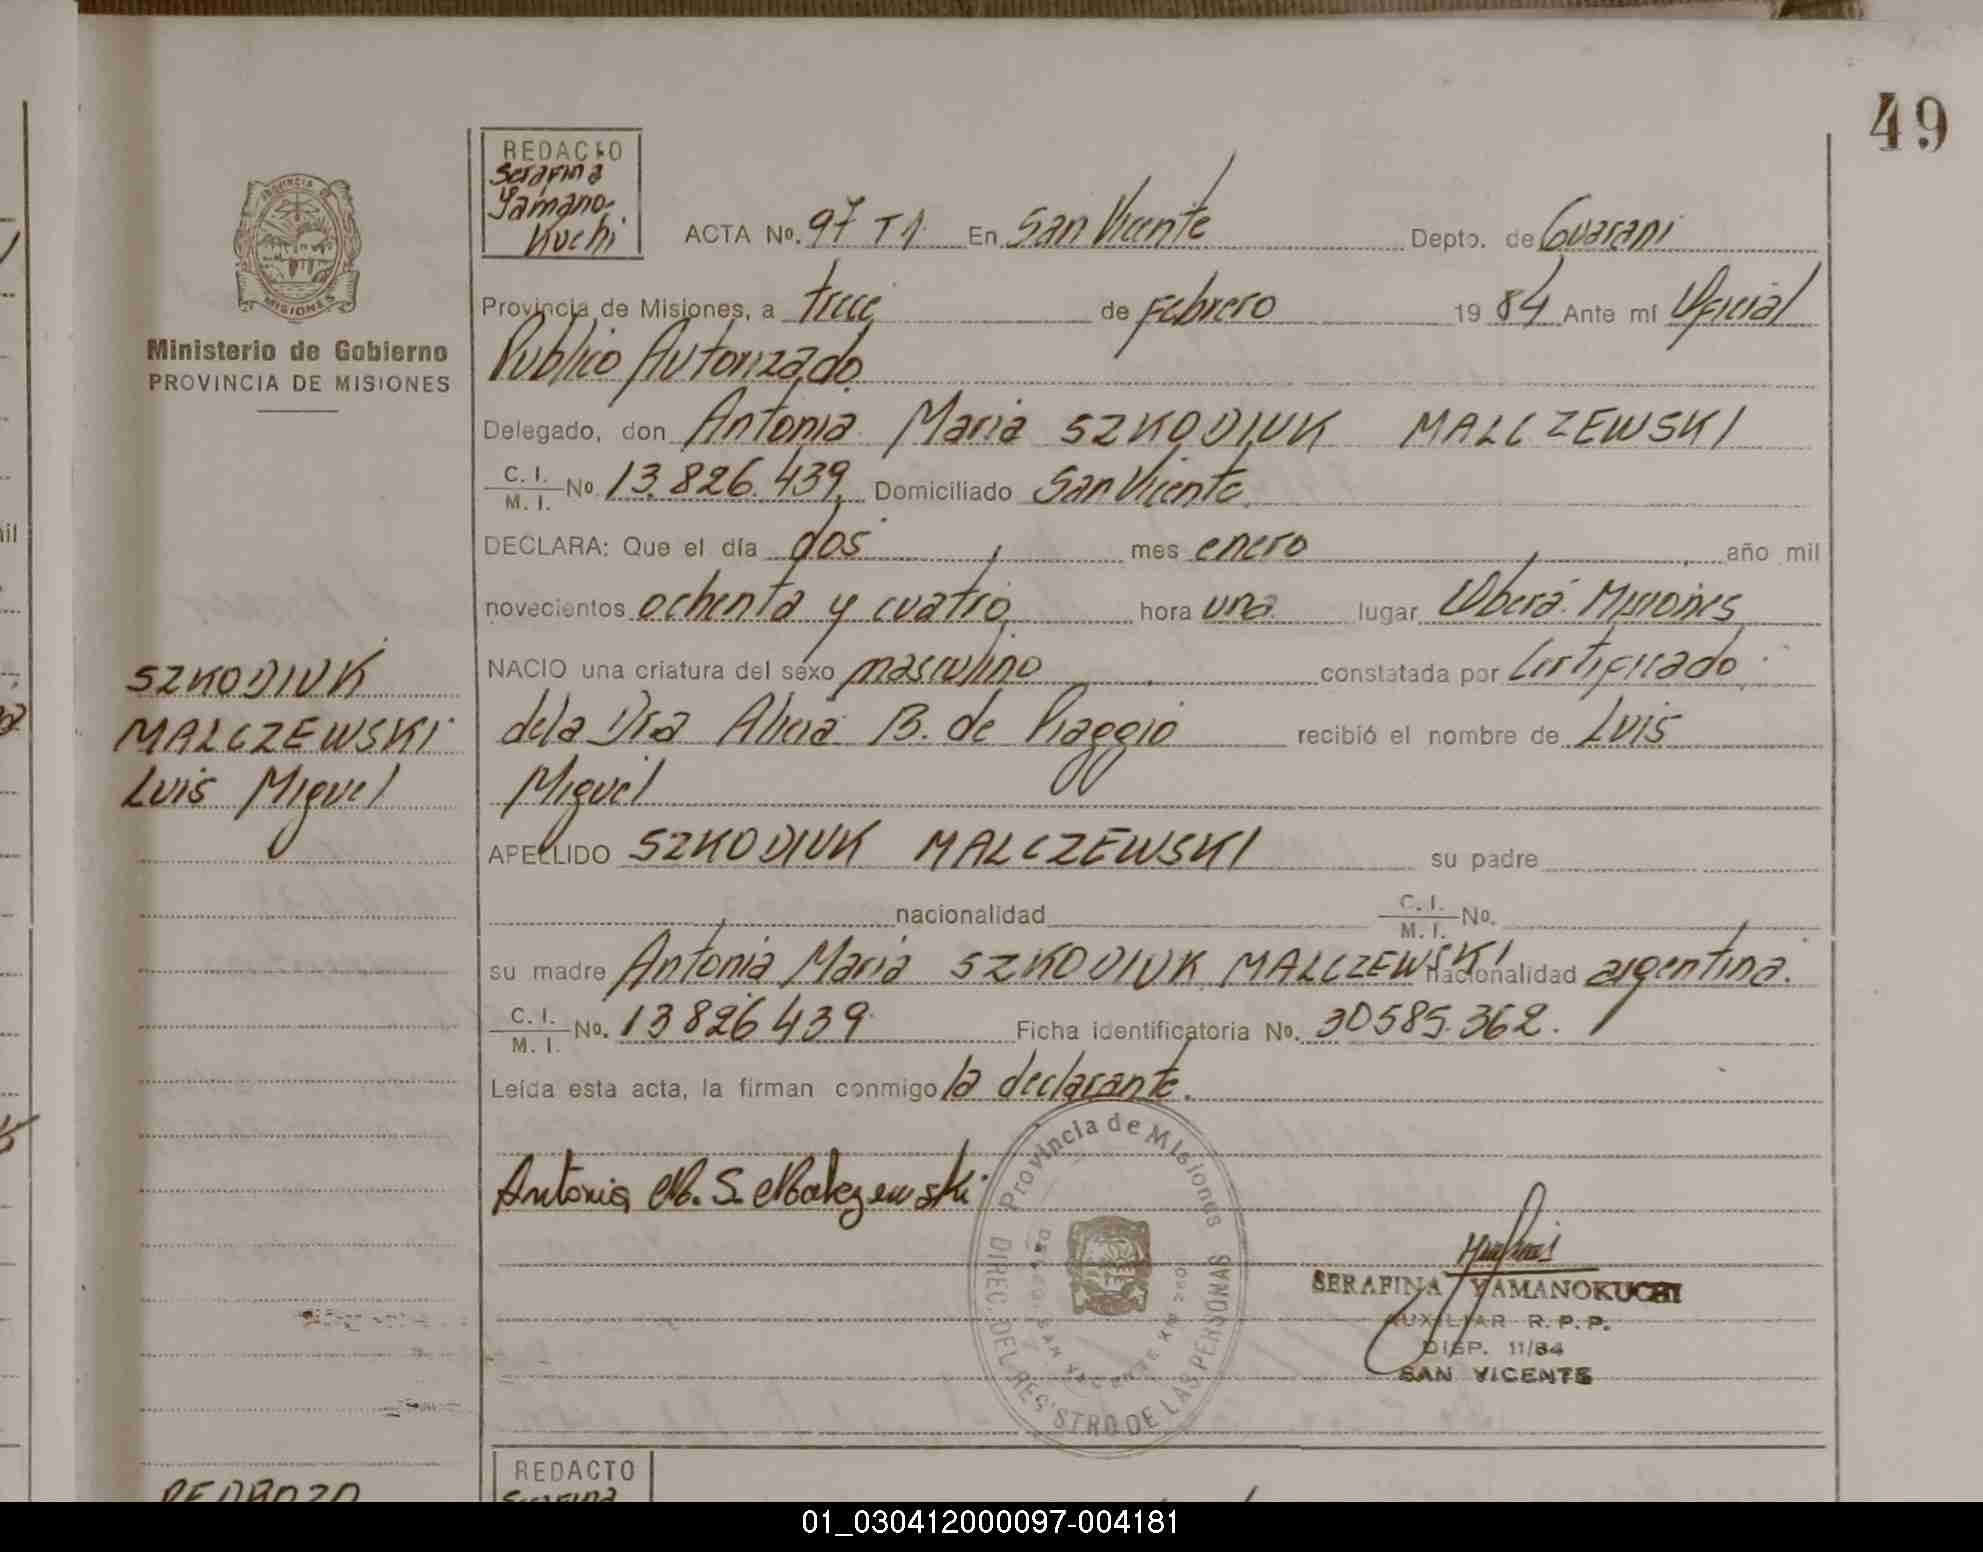 49
REDACTO
Serafina
Yamano-
Kuchi
ACTA No. 97 T1. En San Vicente Depto. de Guarani
PROVINCIA DE
MISIONES
Ministerio de Gobierno
PROVINCIA DE MISIONES
Provincia de Misiones, a trece de Febrero 19 84 Ante mí Oficial
Publico Autorizado.
Delegado, don Antonia Maria SZKODIUK MALCZEWSKI
C. I.
M. I. No. 13.826.439 Domiciliado San Vicente.
DECLARA: Que el día dos mes enero año mil
novecientos ochenta y cuatro hora una lugar Oberá. Misiones
NACIO una criatura del sexo masculino constatada por Certificado
dela Dra Alicia B. de Piaggio recibió el nombre de Luis
Miguel
SZKODIUK
MALCZEWSKI
Luis Miguel
APELLIDO SZKODIUK MALCZEWSKI su padre
nacionalidad C. I.
M. I. No.
su madre Antonia Maria SZKODIUK MALCZEWSKI nacionalidad argentina.
C. I.
M. I. No. 13826439 Ficha identificatoria No. 30585.362.
Leída esta acta, la firman conmigo la declarante.
Antonia M. S. Malczewski
Provincia de Misiones
DIREC. DEL REGISTRO DE LAS PERSONAS
SAN VICENTE KM 260
SERAFINA YAMANOKUCHI
AUXILIAR R. P. P.
DISP. 11/84
SAN VICENTE
REDACTO
Serafina
PEDROZO
01_030412000097-004181